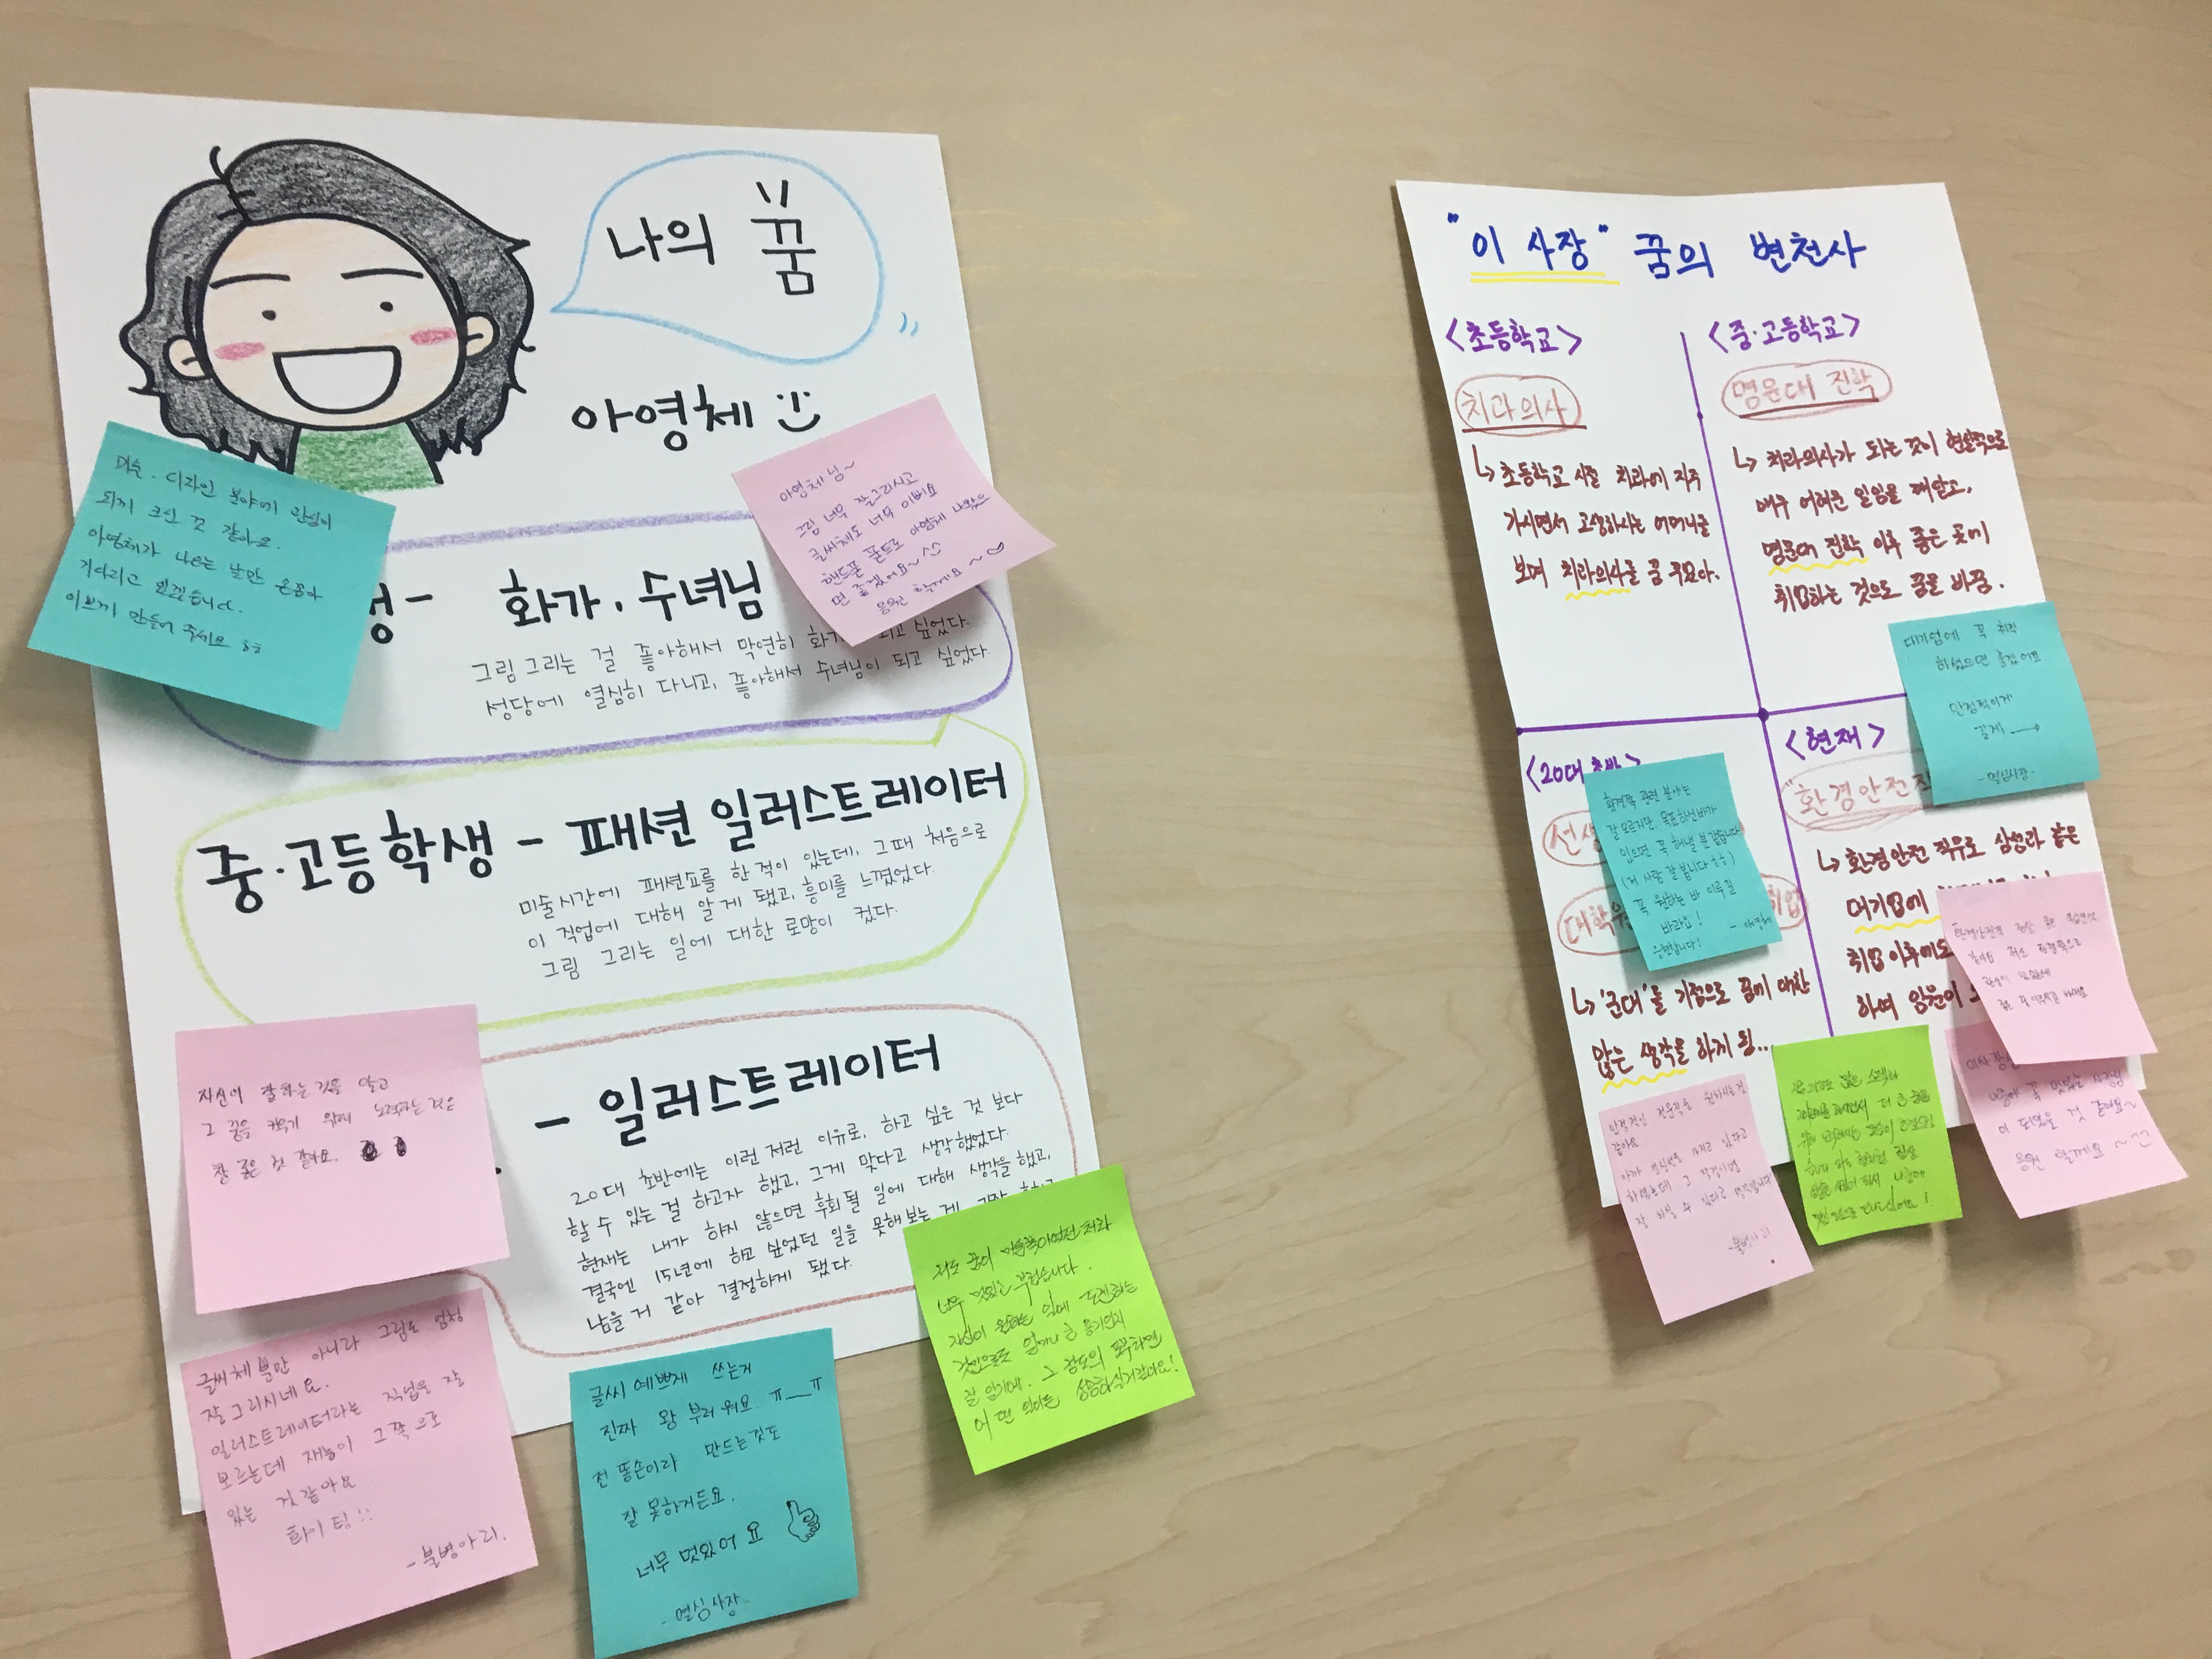 나의 꿈
아영체
미술. 디자인 분야에 관심이
되게 크신 것 같아요.
아영체가 나오는 날만 손꼽아
기다리고 있겠습니다.
이쁘게 만들어 주세요 ㅎㅎ
아영체 님~
그림 너무 잘그리시고
글씨체도 너무 이뻐요
핸드폰 폰트로 아영체 나왔으
면 좋겠어요~
응원 할게요~
생 - 화가, 수녀님
그림 그리는 걸 좋아해서 막연히 화가 되고 싶었다.
성당에 열심히 다니고, 좋아해서 수녀님이 되고 싶었다.
중·고등학생 - 패션 일러스트레이터
미술시간에 패션쇼를 한 적이 있는데, 그때 처음으로
이 직업에 대해 알게 됐고, 흥미를 느꼈었다.
그림 그리는 일에 대한 로망이 컸다.
- 일러스트레이터
20대 초반에는 이런 저런 이유로, 하고 싶은 것 보다
할 수 있는 걸 하고자 했고, 그게 맞다고 생각했었다.
현재는 내가 하지 않으면 후회될 일에 대해 생각을 했고,
결국엔 15년에 하고 싶었던 일을 못해보는 게
남을 거 같아 결정하게 됐다.
자신이 잘하는 것을 알고
그 꿈을 키우기 위해 노력하는 것은
참 좋은 것 같아요.
글씨체 뿐만 아니라 그림도 엄청
잘 그리시네요.
일러스트레이터라는 직업을 잘
모르는데 재능이 그쪽으로
있는 것 같아요
화이팅!!
-불병아리.
글씨 예쁘게 쓰는거
진짜 왕 부러워요. ㅠ__ㅠ
전 똥손이라 만드는것도
잘 못하거든요.
너무 멋있어요
-열심사장-
저도 꿈이 미술쪽이었던지라
너무 멋있고 부럽습니다.
자신이 원하는 일에 도전하는
것만으로도 얼마나 큰 용기인지
잘 알기에. 그 정도의 포부라면
어떤 일이든 성공하실거같아요!
"이 사장" 꿈의 변천사
<초등학교>
치과의사
↳ 초등학교 시절 치과에 자주
가시면서 고생하시는 어머니를
보며 치과의사를 꿈 꾸므아.
<중·고등학교>
명문대 진학
↳ 치과의사가 되는 것이 현실적으로
매우 어려운 일임을 깨닫고,
명문대 진학 이후 좋은 곳에
취업하는 것으로 꿈을 바꿈.
대기업에 꼭 취직
하셨으면 좋겠어요
안정적이게
길게 →
-열심사장-
<20대 초반>
환경쪽 관련 분야는
잘 모르지만, 목표하신바가
있으면 꼭 해낼 분 같습니다
(저 사람 잘 봅니다 ㅎㅎ)
꼭 원하는 바 이루길
바라요!
응원합니다! - 아영체
취업
↳ '군대'를 기점으로 꿈에 대한
많은 생각을 하게 됨...
<현재>
환경안전
↳ 환경안전 직무로 삼성과 같은
대기업에
취업 이후에도
하여 임원이
나중에 꼭 멋있는 사장님
이 되었을 것 같아요~
응원 할게요~
안정적인 전문직을 원하시는 것
같아요
-불병아리